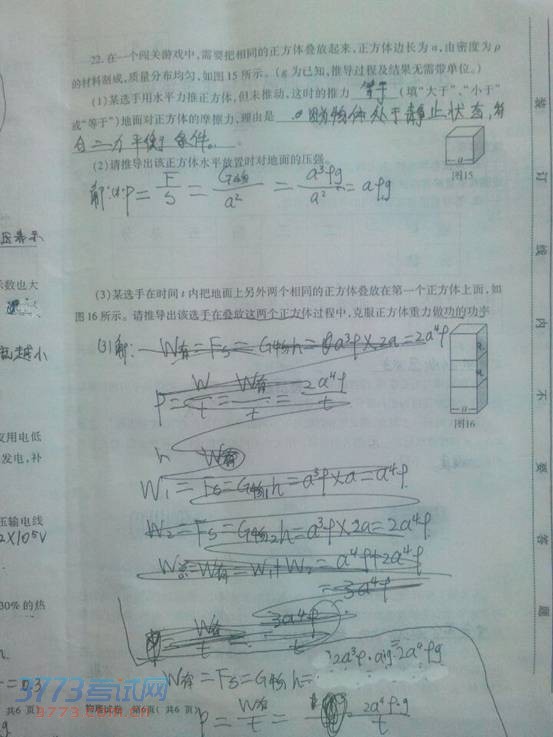 22.在一个闯关游戏中,需要把相同的正方体叠放起来,正方体边长为a,由密度为ρ
的材料制成,质量分布均匀,如图15所示。(g为已知,推导过程及结果无需带单位。)
(1)某选手用水平力推正方体,但未推动,这时的推力 等于 (填"大于"、"小于"
或"等于")地面对正方体的摩擦力,理由是 物体处于静止状态,符
合二力平衡条件。
图15
(2)请推导出该正方体水平放置时对地面的压强。
解:(2) P=F/S=G物/a²=a³ρg/a²=aρg
(3)某选手在时间t内把地面上另外两个相同的正方体叠放在第一个正方体上面,如
图16所示。请推导出该选手在叠放这两个正方体过程中,克服正方体重力做功的功率
(3)解: W有=Fs=G物h=a³ρ×2a=2a⁴ρ
P=W/t=W有/t=2a⁴ρ/t
图16
h W有
W₁=Fs=G物₁h=a³ρ×a=a⁴ρ
W₂=Fs=G物₂h=a³ρ×2a=2a⁴ρ
W总=W有=W₁+W₂=a⁴ρ+2a⁴ρ
=3a⁴ρ
P=W有/t=3a⁴ρ/t
2a³ρ·a·g=2a⁴ρg
W有=Fs=G物h=
P=W有/t=2a⁴ρ·g/t
物理试卷 第6页(共6页)
共6页)
3773考试网
3773.com.cn
压表示
示数也大
越小
用电低
发电,补
压输电线
2×10⁵V
30%的热
=0.3
装
订
线
内
不
要
答
题